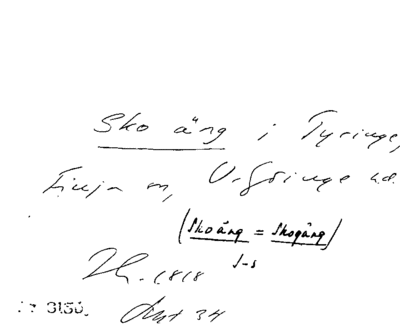 Sko äng i Tyringe,
Finja sn, V. Göinge hd.
(Skoäng = Skogäng)
J-s
1818
34
3150